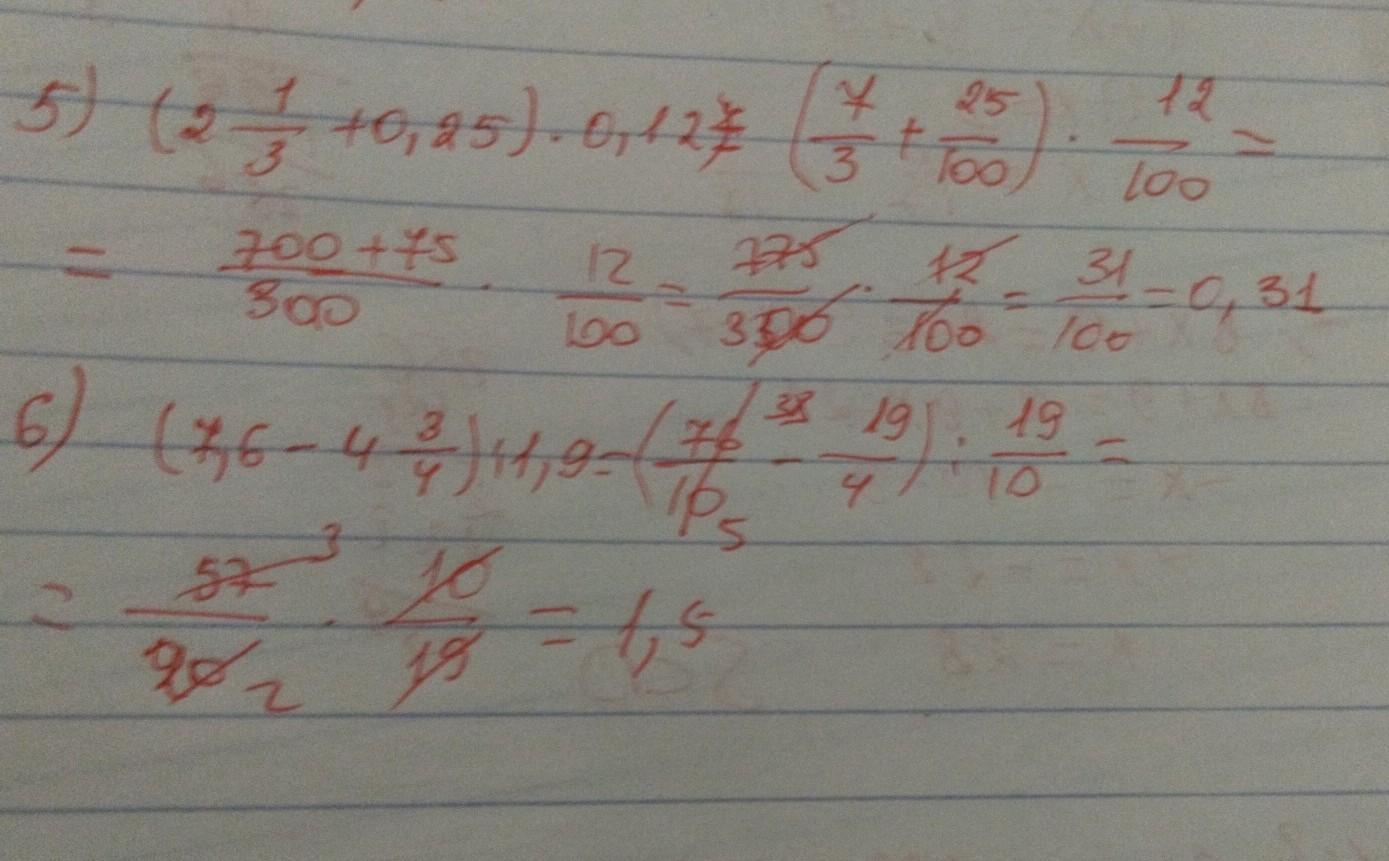 5) (2 1/3 + 0,25) · 0,12 = (7/3 + 25/100) · 12/100 =
= (700 + 75)/300 · 12/100 = 775/300 · 12/100 = 31/100 = 0,31
6) (7,6 - 4 3/4) : 1,9 = (76/10 38 5 - 19/4) : 19/10 =
= 57 3/20 2 · 10/19 = 1,5